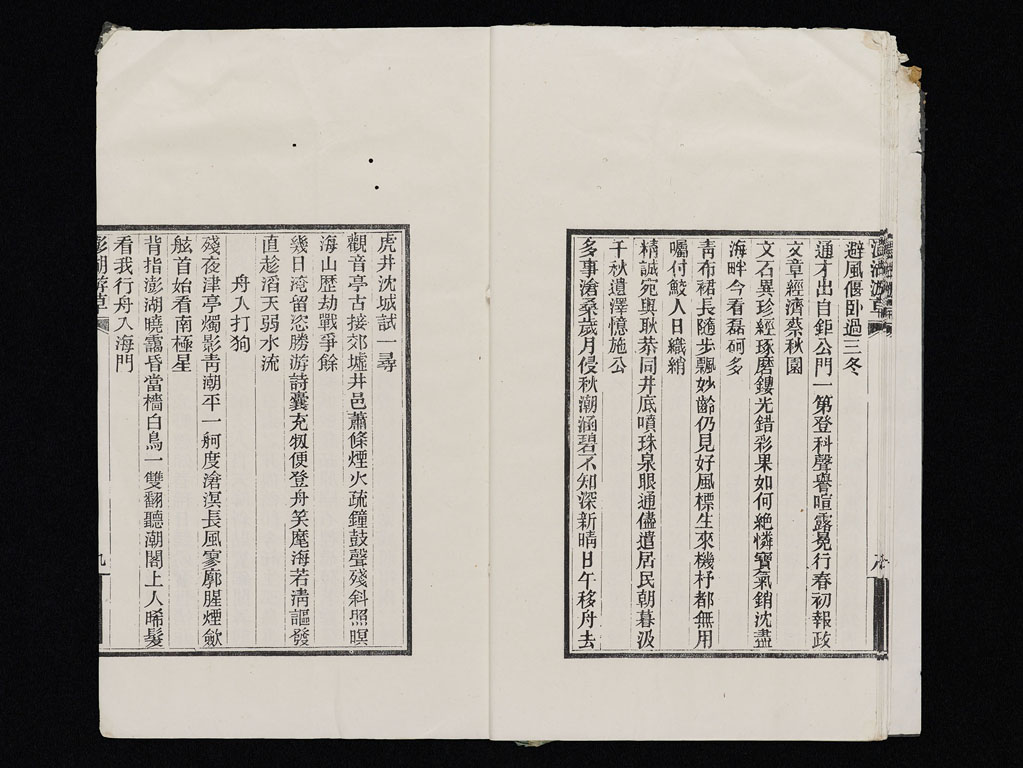 避風偃臥過三冬
通才出自鉅公門一第登科聲譽喧露冕行春初報政
文章經濟蔡秋園
文石異珍經琢磨鏤光錯彩果如何絶憐寶氣銷沈盡
海畔今看磊砢多
靑布裙長隨步飄妙齡仍見好風標生來機杼都無用
囑付鮫人日織綃
精誠宛與耿恭同井底噴珠泉眼通儘遣居民朝暮汲
千秋遺澤憶施公
多事滄桑歲月侵秋潮涵碧不知深新晴日午移舟去
虎井沈城試一尋
觀音亭古接郊墟井邑蕭條煙火疏鐘鼓聲殘斜照暝
海山歷劫戰爭餘
幾日淹留恣勝游詩囊充牣便登舟笑麾海若淸謳發
直趁滔天弱水流
舟入打狗
殘夜津亭燭影靑潮平一舸度滄溟長風寥廓腥煙歛
舷首始看南極星
背指澎湖曉靄昏當檣白鳥一雙翻聽潮閣上人晞髮
看我行舟入海門
澎湖游草
九